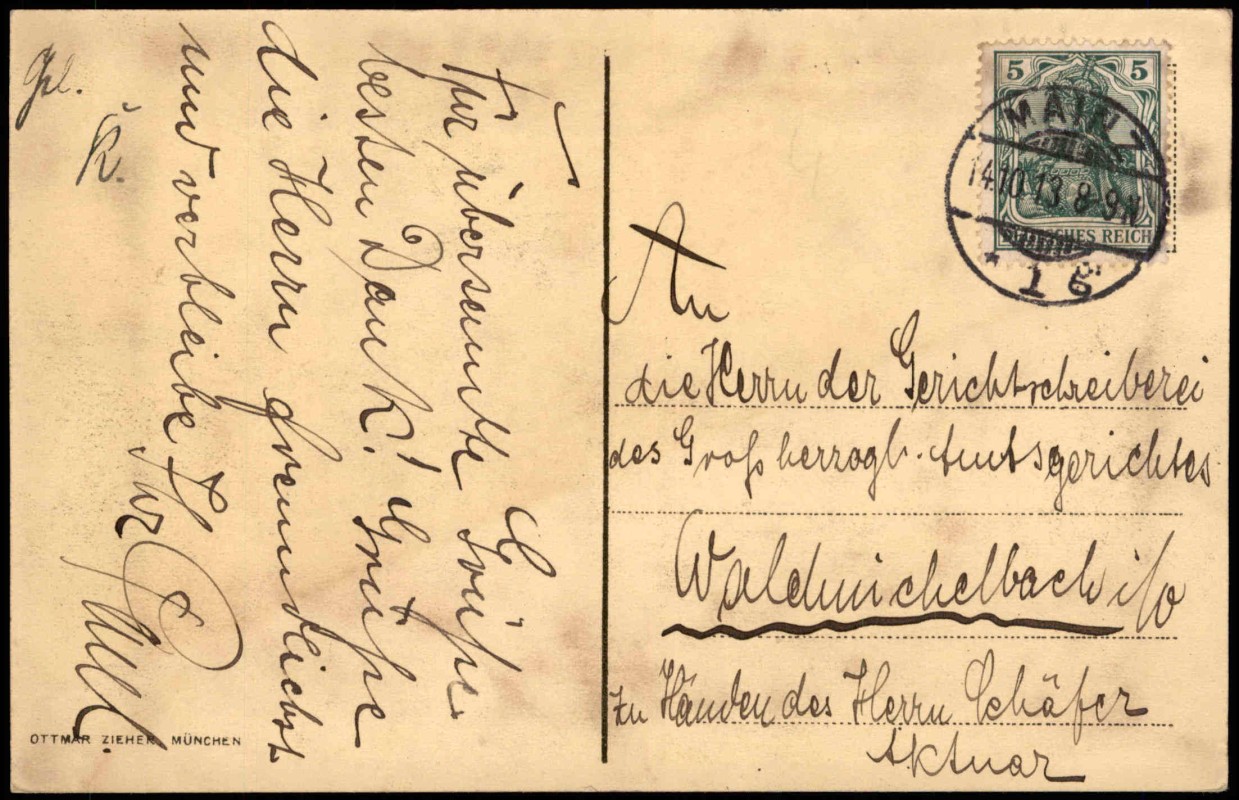 Für übersandte Grüße
besten Dank! Grüße
die Herrn freundlichst
und verbleibe
Ihr
K.
OTTMAR ZIEHER, MÜNCHEN
5 5
DEUTSCHES REICH
MAINZ
14.10.13 8-9N
* 1 G
An
die Herrn der Gerichtschreiberei
des Großherzogl. Amtsgerichtes
Waldmichelbach i/o
zu Händen des Herrn Schäfer
Aktuar